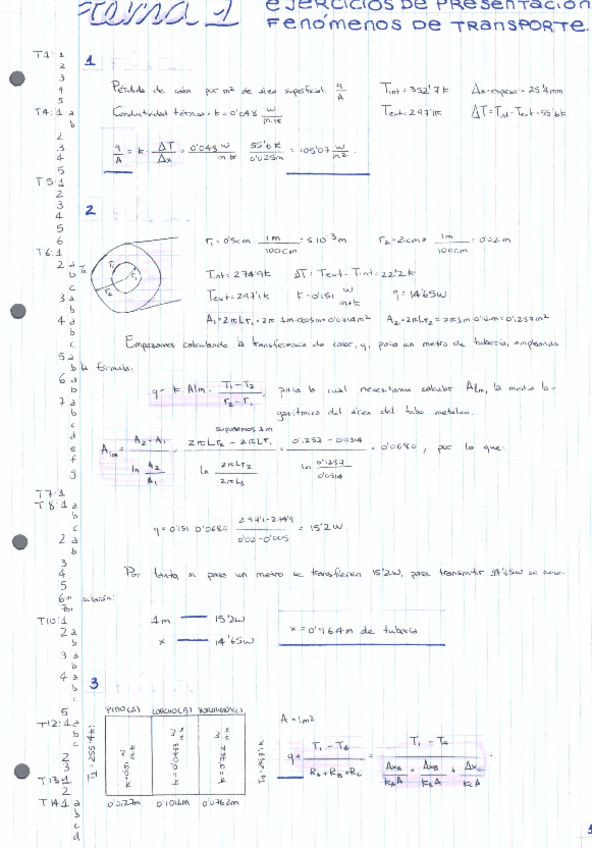 Tema 1
EJERCICIOS DE PRESENTACIÓN
FENÓMENOS DE TRANSPORTE.
1
Pérdida de calor por m² de área superficial: q/A
Tint = 352'7k Δx = espesor = 25'4mm
Conductividad térmica = k = 0'048 W/m·K
Text = 297'1k ΔT = Tint - Text = 55'6k
q/A = k · ΔT/Δx = 0'048 W/m·k 55'6k/0'025m = 105'07 W/m².
2
r₁ = 0'5cm 1m/100cm = 5·10⁻³m r₂ = 2cm 1m/100cm = 0'02m
Tint = 274'9k ΔT = Text - Tint = 22'2k
Text = 297'1k k = 0'151 W/m·k q = 14'65W.
A₁ = 2πLr₁ = 2π 1m 0'005m = 0'0314m² A₂ = 2πLr₂ = 2π 1m 0'02m = 0'1257m²
Empezamos calculando la transferencia de calor, q, para un metro de tubería, empleando
la fórmula:
q = k · Alm · T₁ - T₂/r₂ - r₁, para lo cual necesitamos calcular Alm, la media lo-
garítmica del área del tubo metálico.
suponemos 1m
Alm = A₂ - A₁/ln A₂/A₁ = 2πLr₂ - 2πLr₁/ln 2πLr₂/2πLr₁ = 0'1257 - 0'0314/ln 0'1257/0'0314 = 0'0680, por lo que:
q = 0'151 · 0'0680 · 297'1 - 274'9/0'02 - 0'005 = 15'2W.
Por tanto, si para un metro se transfieren 15'2W, para transmitir 14'65W se nece-
sitarán:
1m — 15'2W
x — 14'65W
x = 0'964m de tubería
3
PINO(A) CORCHO(B) HORMIGÓN(C)
A = 1m²
T₁ = 255'4k
k = 0'151 W/m·k
k = 0'0433 W/m·k
k = 0'762 W/m·k
T₄ = 297'1k
q = T₁ - T₄/RA + RB + RC = T₁ - T₄/ΔxA/kA A + ΔxB/kB A + ΔxC/kC A =
0'0127m 0'1016m 0'0762m
1